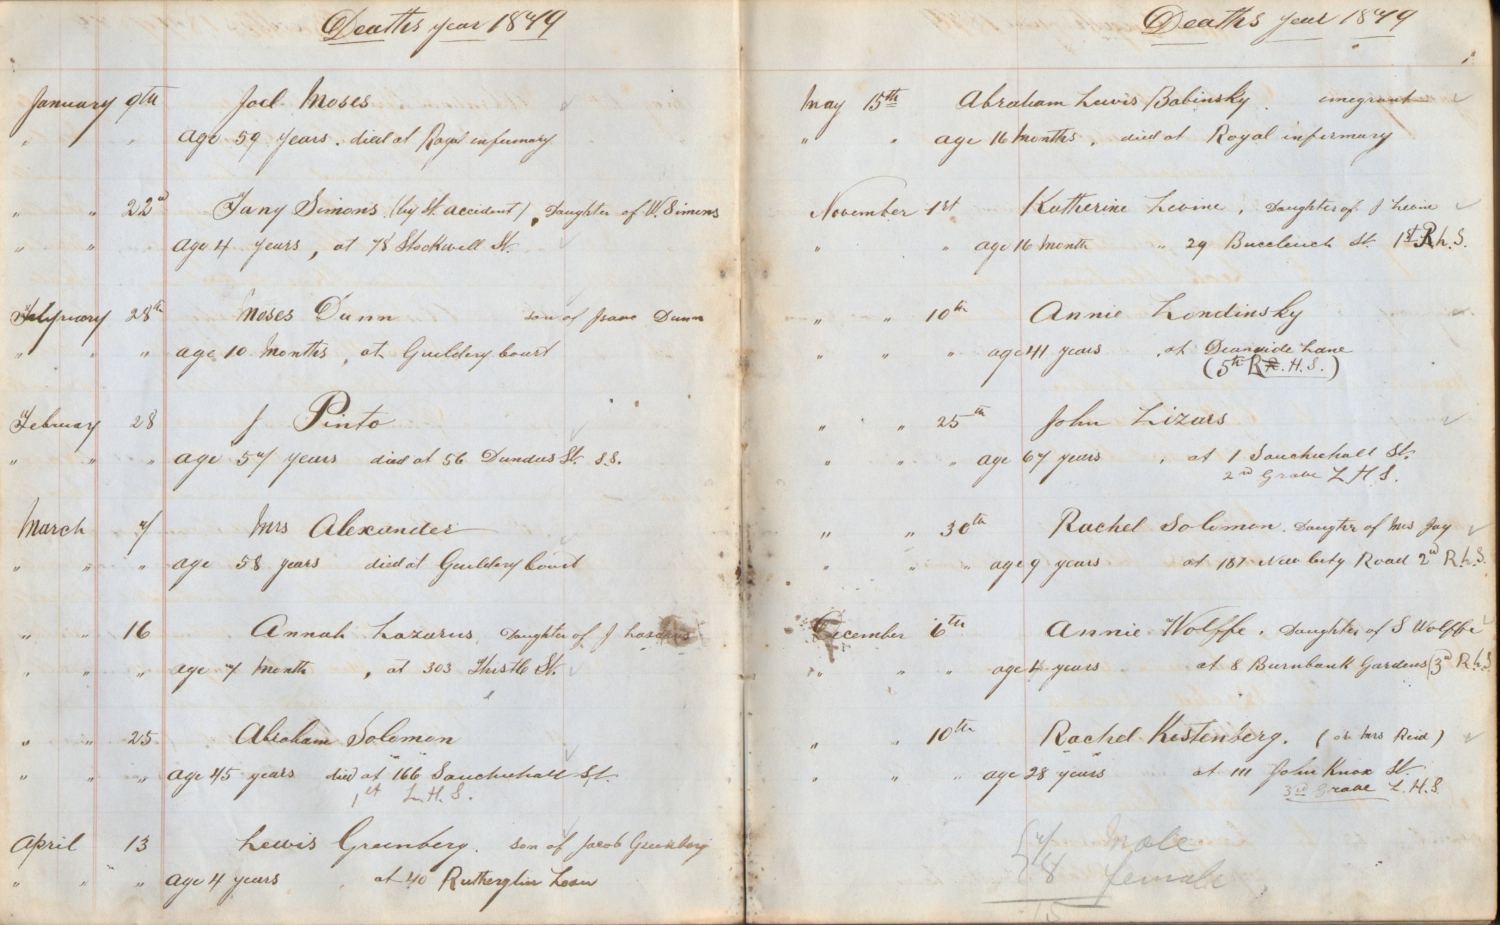 Deaths year 1879
January 9th Joel Moses
" " age 59 years . died at Royal infirmary
" " 22nd Fany Simons (by St. accident) , Daughter of W. Simons
" " age 4 years , at 78 Stockwell St.
February 28th Moses Dunn son of Isaac Dunn
" " " age 10 Months , at Guildery Court
February 28 J Pinto
" " " age 57 years died at 56 Dundas St. S.S.
March 7 Mrs Alexander
" " " age 58 years died at Guildery Court
" " 16 Annah Lazarus Daughter of J Lazarus
" " " age 7 month , at 303 Thistle St.
" " 25 Abraham Solomon
" " " age 45 years died at 166 Sauchiehall St.
1st L.H.S.
April 13 Lewis Greenberg . son of Jacob Greenberg
" " " age 4 years at 40 Rutherglen
Deaths year 1879
May 15th Abraham Lewis Babinsky . emegrant
" " age 16 Months , died at Royal infirmary
November 1st Katherine Levine , Daughter of J Levine
" " age 16 Month " 29 Buccleuch St. 1st R.h.S.
" " 10th Annie Londinsky
" " " age 41 years , at Deanside Lane
(5th R.H.S.)
" " 25th John Lizars
" " " age 67 years , at 1 Sauchiehall St.
2nd Grave L.H.S.
" " 30th Rachel Solomon . Daugter of Mrs Jay
" " " age 9 years at 187 New City Road 2nd R.h.S.
December 6th Annie Wolffe . Daughter of S Wolffe
" " " age 4 years at 8 Burnbank Gardens (3rd R.h.S
" " 10th Rachel Kestenberg . (or Mrs Reid)
" " " age 28 years at 111 John Knox St.
3rd Grave L.H.S.
7 Male
8 female
15